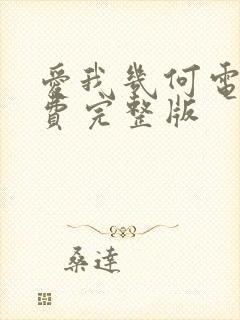 愛我幾何電
費完整版
桑達